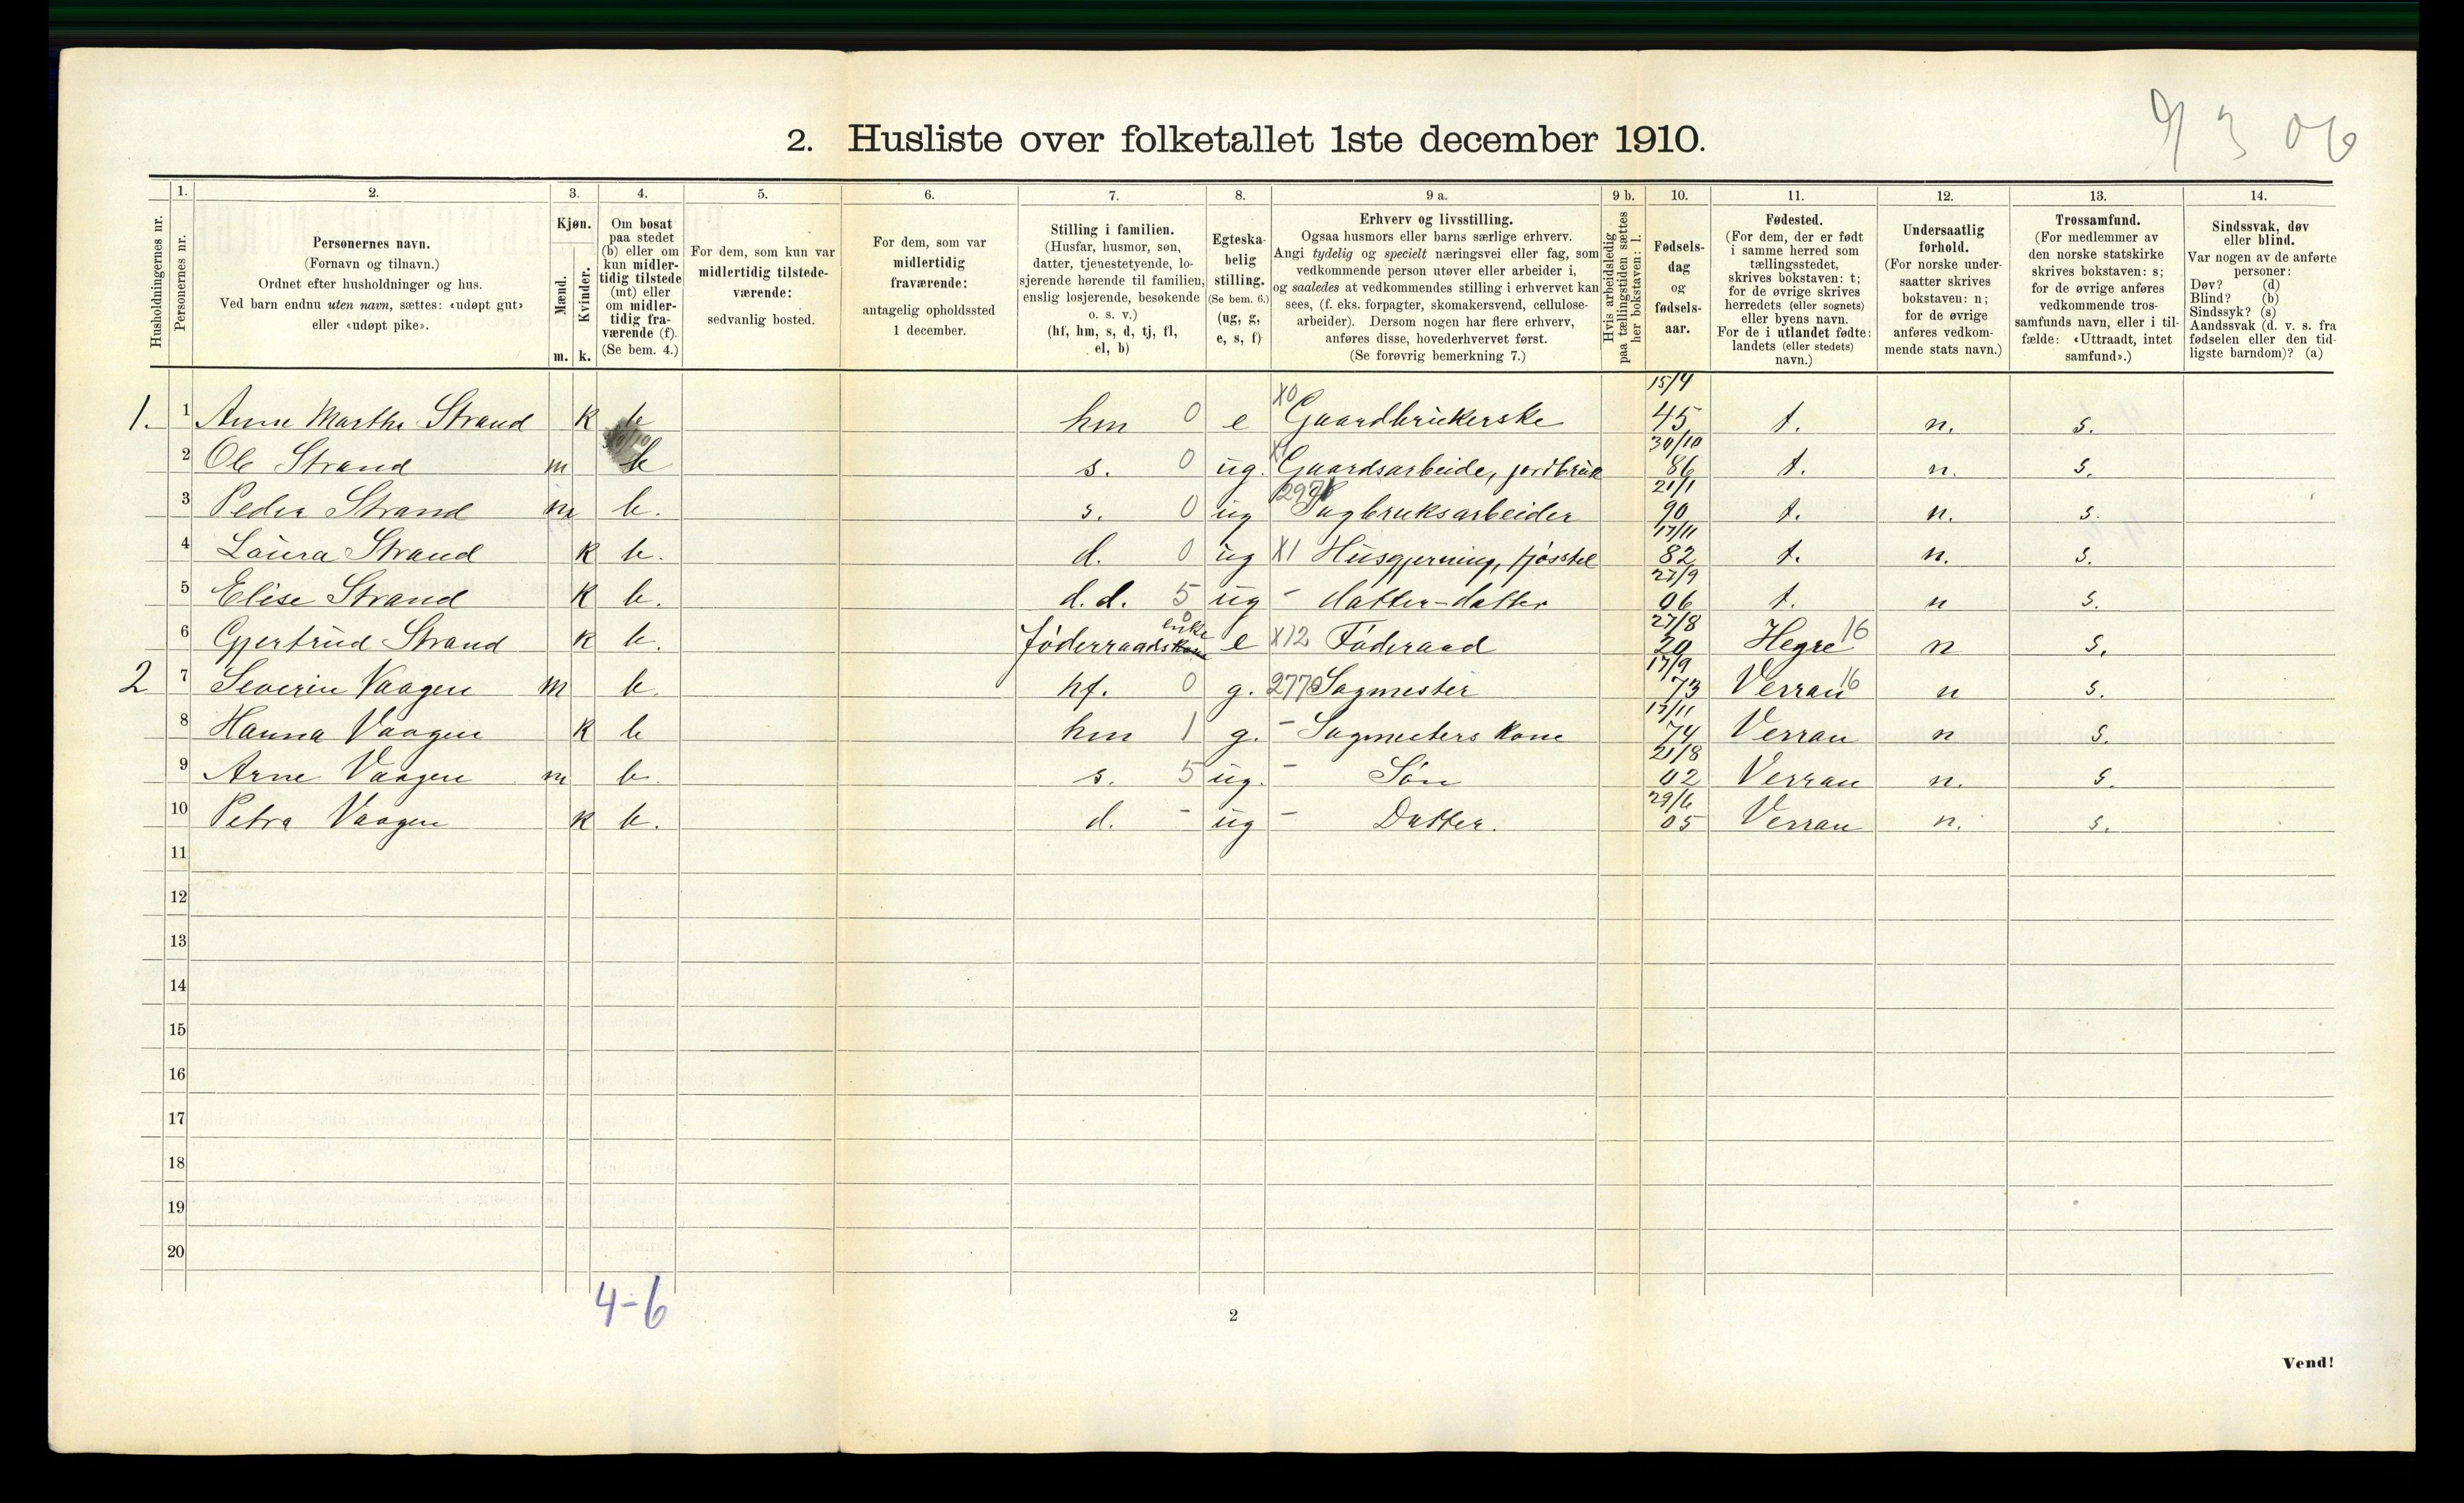 9/3 06
2. Husliste over folketallet 1ste december 1910.
Husholdningernes nr.
1. Personernes nr.
2. Personernes navn. (Fornavn og tilnavn.) Ordnet efter husholdninger og hus. Ved barn endnu uten navn, sættes: «udøpt gut» eller «udøpt pike».
3. Kjøn. Mænd. m. Kvinder. k.
4. Om bosat paa stedet (b) eller om kun midlertidig tilstede (mt) eller om midlertidig fraværende (f). (Se bem. 4.)
5. For dem, som kun var midlertidig tilstedeværende: sedvanlig bosted.
6. For dem, som var midlertidig fraværende: antagelig opholdssted 1 december.
7. Stilling i familien. (Husfar, husmor, søn, datter, tjenestetyende, losjerende hørende til familien, enslig losjerende, besøkende o. s. v.) (hf, hm, s, d, tj, fl, el, b)
8. Egteskabelig stilling. (Se bem. 6.) (ug, g, e, s, f)
9 a. Erhverv og livsstilling. Ogsaa husmors eller barns særlige erhverv. Angi tydelig og specielt næringsvei eller fag, som vedkommende person utøver eller arbeider i, og saaledes at vedkommendes stilling i erhvervet kan sees, (f. eks. forpagter, skomakersvend, cellulosearbeider). Dersom nogen har flere erhverv, anføres disse, hovederhvervet først. (Se forøvrig bemerkning 7.)
9 b. Hvis arbeidsledig paa tællingstiden sættes her bokstaven: l.
10. Fødselsdag og fødselsaar.
11. Fødested. (For dem, der er født i samme herred som tællingsstedet, skrives bokstaven: t; for de øvrige skrives herredets (eller sognets) eller byens navn. For de i utlandet fødte: landets (eller stedets) navn.)
12. Undersaatlig forhold. (For norske undersaatter skrives bokstaven: n; for de øvrige anføres vedkommende stats navn.)
13. Trossamfund. (For medlemmer av den norske statskirke skrives bokstaven: s; for de øvrige anføres vedkommende trossamfunds navn, eller i tilfælde: «Uttraadt, intet samfund».)
14. Sindssvak, døv eller blind. Var nogen av de anførte personer: Døv? (d) Blind? (b) Sindssyk? (s) Aandssvak (d. v. s. fra fødselen eller den tidligste barndom)? (a)
1. 1 Anne Martha Strand k b hm 0 e X0 Gaardbrukerske 15/4 45 t. n. s.
2 Ole Strand m b s. 0 ug. X1 Gaardsarbeide, jordbruk 30/10 86 t. n. s.
3 Peder Strand m b. s. 0 ug Sagbruksarbeider 21/1 90 t. n. s.
4 Laura Strand k b. d. 0 ug X1 Husgjerning, fjøsstel 17/11 82 t. n. s.
5 Elise Strand k b. d.d. 5 ug - datter-datter 27/9 06 t. n s.
6 Gjertrud Strand k b. føderraads enke 0 e X12 Føderaad 27/8 20 Hegre 16 n s.
2 7 Severin Vaagen m b. hf. 0 g. 2770 Sagmester 17/9 73 Verran 16 n s.
8 Hanna Vaagen k b hm 1 g. - Sagmesters kone 13/11 74 Verran n s.
9 Arne Vaagen m b. s. 5 ug. - Søn 21/8 02 Verran n. s.
10 Petra Vaagen k b. d. - ug - Datter. 29/6 05 Verran n. s.
11
12
13
14
15
16
17
18
19
20
4-6
2
Vend!